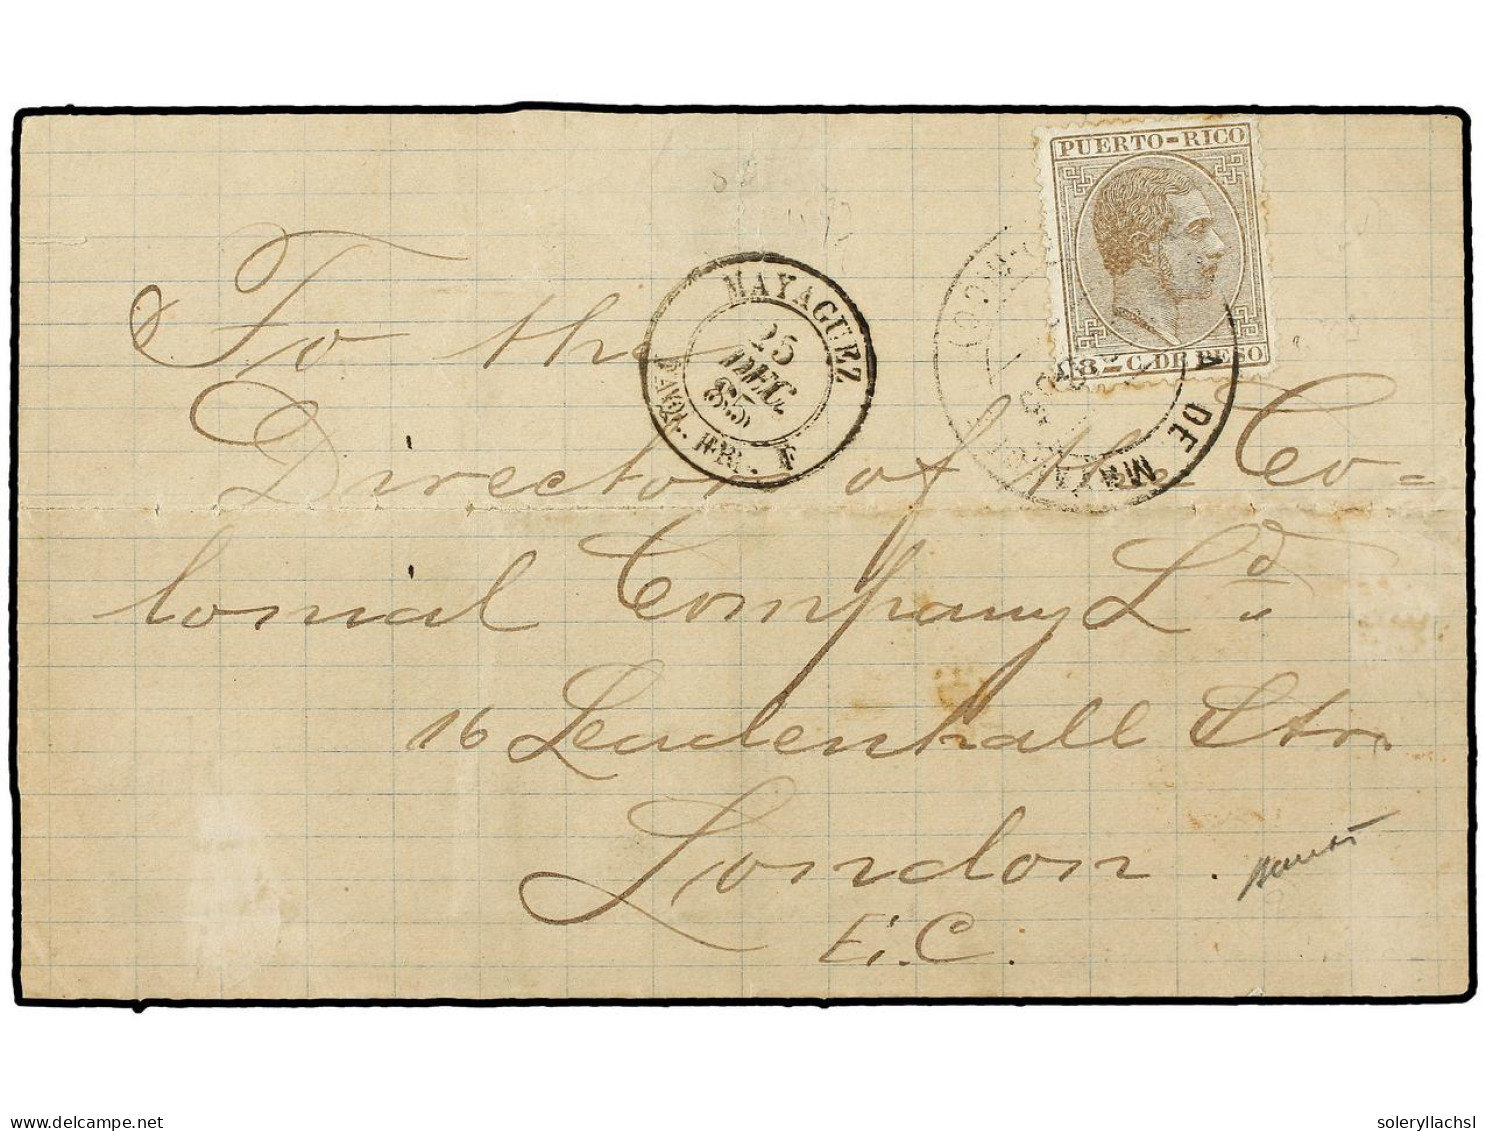 PUERTO-RICO
8 C. DE PESO
MAYAGUEZ
25
DEC.
85
A DE
To the
Director of the Co=
lonial Company Ld
16 Leadenhall Str.
London.
E.C.
delcampe.net
soleryllachsl